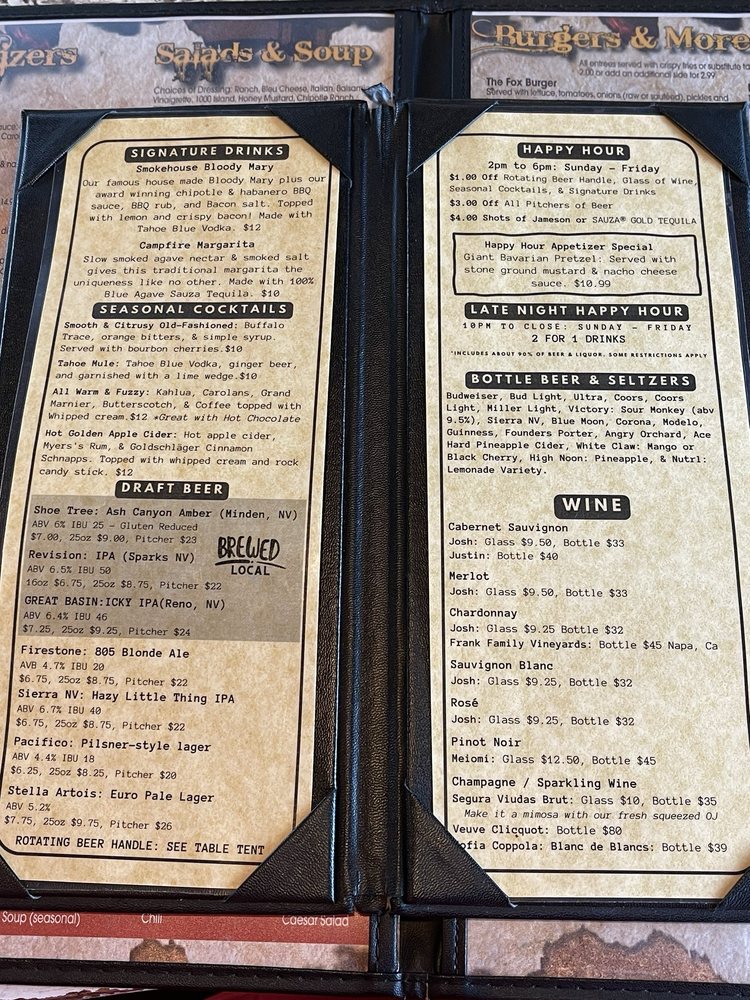 izers
Salads & Soup
Burgers & More
Choices of Dressing: Ranch, Bleu Cheese, Italian, Balsamic
Vinaigrette, 1000 Island, Honey Mustard, Chipotle Ranch
All entrees served with crispy fries or substitute
2.00 or add an additional side for 2.99
The Fox Burger
Served with lettuce, tomatoes, onions (raw or sautéed), pickles and
SIGNATURE DRINKS
Smokehouse Bloody Mary
Our famous house made Bloody Mary plus our
award winning chipotle & habanero BBQ
sauce, BBQ rub, and Bacon salt. Topped
with lemon and crispy bacon! Made with
Tahoe Blue Vodka. $12
Campfire Margarita
Slow smoked agave nectar & smoked salt
gives this traditional margarita the
uniqueness like no other. Made with 100%
Blue Agave Sauza Tequila. $10
SEASONAL COCKTAILS
Smooth & Citrusy Old-Fashioned: Buffalo
Trace, orange bitters, & simple syrup.
Served with bourbon cherries.$10
Tahoe Mule: Tahoe Blue Vodka, ginger beer,
and garnished with a lime wedge.$10
All Warm & Fuzzy: Kahlua, Carolans, Grand
Marnier, Butterscotch, & Coffee topped with
Whipped cream.$12 *Great with Hot Chocolate
Hot Golden Apple Cider: Hot apple cider,
Myers's Rum, & Goldschläger Cinnamon
Schnapps. Topped with whipped cream and rock
candy stick. $12
DRAFT BEER
Shoe Tree: Ash Canyon Amber (Minden, NV)
ABV 6% IBU 25 – Gluten Reduced
$7.00, 25oz $9.00, Pitcher $23
Revision: IPA (Sparks NV)
ABV 6.5% IBU 50
16oz $6.75, 25oz $8.75, Pitcher $22
BREWED
LOCAL
GREAT BASIN:ICKY IPA(Reno, NV)
ABV 6.4% IBU 46
$7.25, 25oz $9.25, Pitcher $24
Firestone: 805 Blonde Ale
AVB 4.7% IBU 20
$6.75, 25oz $8.75, Pitcher $22
Sierra NV: Hazy Little Thing IPA
ABV 6.7% IBU 40
$6.75, 25oz $8.75, Pitcher $22
Pacifico: Pilsner-style lager
ABV 4.4% IBU 18
$6.25, 25oz $8.25, Pitcher $20
Stella Artois: Euro Pale Lager
ABV 5.2%
$7.75, 25oz $9.75, Pitcher $26
ROTATING BEER HANDLE: SEE TABLE TENT
HAPPY HOUR
2pm to 6pm: Sunday – Friday
$1.00 Off Rotating Beer Handle, Glass of Wine,
Seasonal Cocktails, & Signature Drinks
$3.00 Off All Pitchers of Beer
$4.00 Shots of Jameson or SAUZA® GOLD TEQUILA
Happy Hour Appetizer Special
Giant Bavarian Pretzel: Served with
stone ground mustard & nacho cheese
sauce. $10.99
LATE NIGHT HAPPY HOUR
10PM TO CLOSE: SUNDAY – FRIDAY
2 FOR 1 DRINKS
*INCLUDES ABOUT 90% OF BEER & LIQUOR. SOME RESTRICTIONS APPLY
BOTTLE BEER & SELTZERS
Budweiser, Bud Light, Ultra, Coors, Coors
Light, Miller Light, Victory: Sour Monkey (abv
9.5%), Sierra NV, Blue Moon, Corona, Modelo,
Guinness, Founders Porter, Angry Orchard, Ace
Hard Pineapple Cider, White Claw: Mango or
Black Cherry, High Noon: Pineapple, & Nutrl:
Lemonade Variety.
WINE
Cabernet Sauvignon
Josh: Glass $9.50, Bottle $33
Justin: Bottle $40
Merlot
Josh: Glass $9.50, Bottle $33
Chardonnay
Josh: Glass $9.25 Bottle $32
Frank Family Vineyards: Bottle $45 Napa, Ca
Sauvignon Blanc
Josh: Glass $9.25, Bottle $32
Rosé
Josh: Glass $9.25, Bottle $32
Pinot Noir
Meiomi: Glass $12.50, Bottle $45
Champagne / Sparkling Wine
Segura Viudas Brut: Glass $10, Bottle $35
Make it a mimosa with our fresh squeezed OJ
Veuve Clicquot: Bottle $80
ofia Coppola: Blanc de Blancs: Bottle $39
Soup (seasonal)
Chili
Caesar Salad